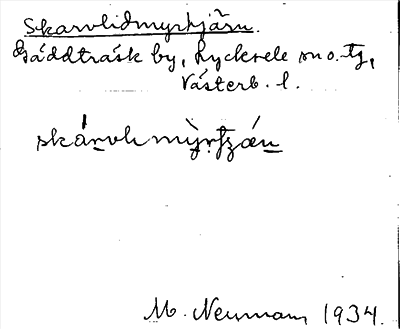 Skarvlidmyrtjärn.
Gäddträsk by, Lycksele sn o. tg,
Västerb. l.
M. Neuman, 1934.